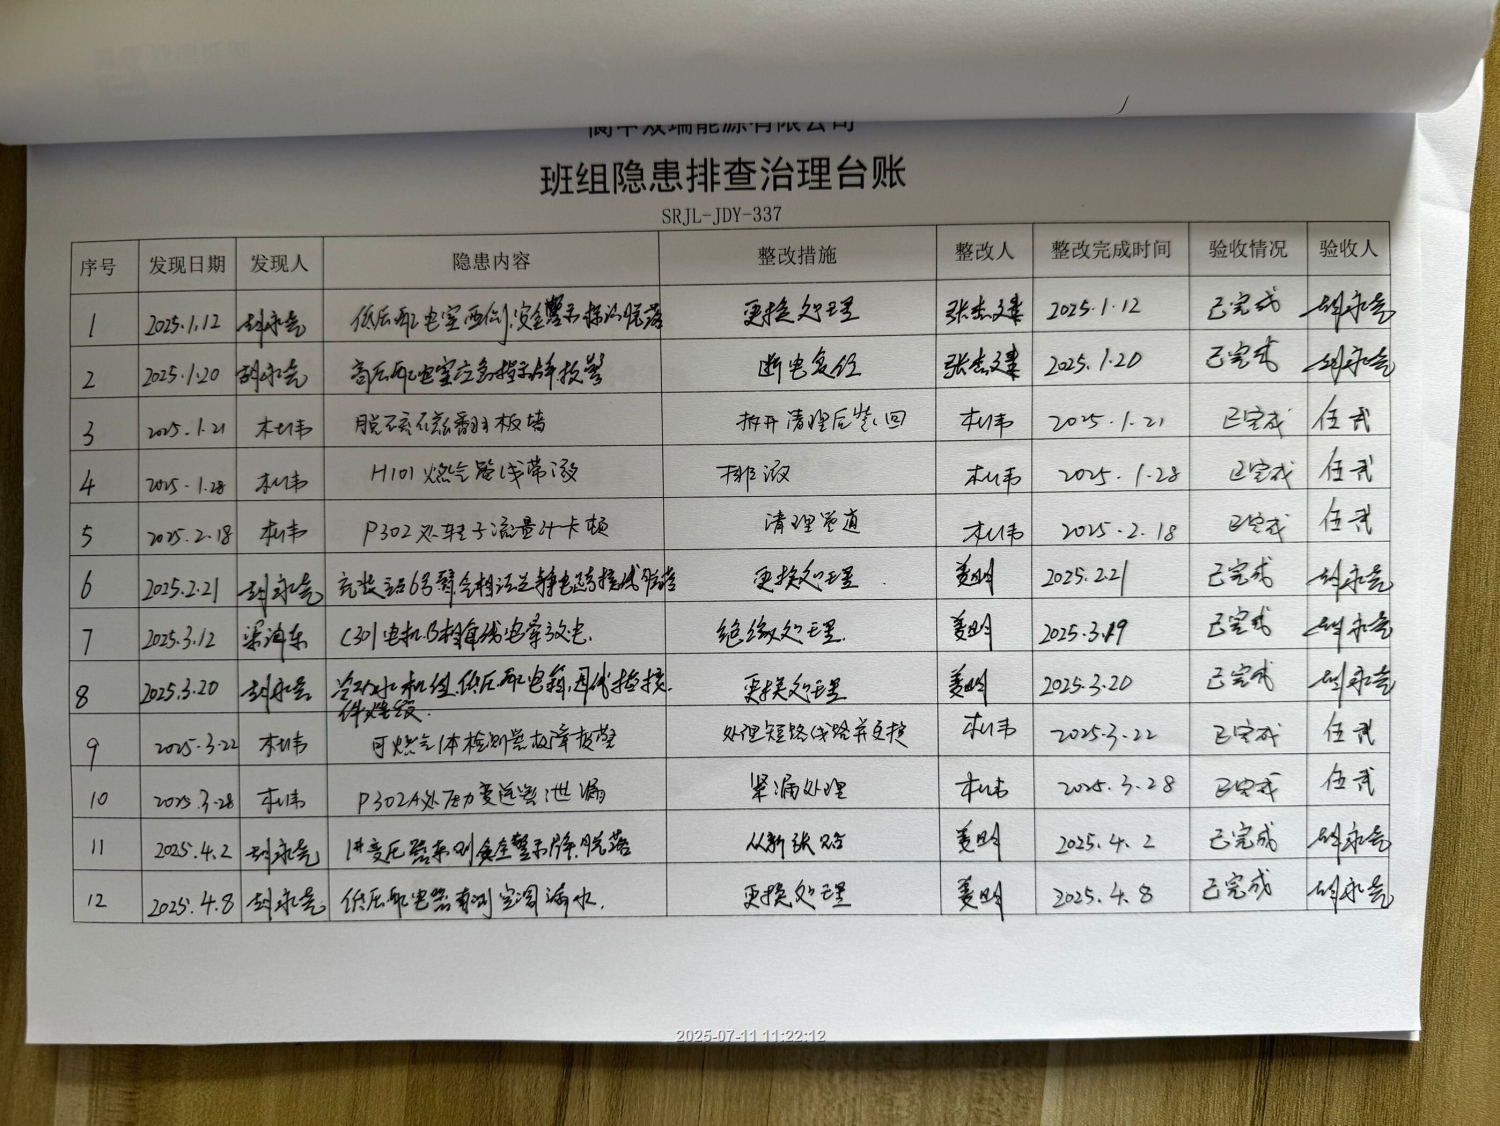 阆中双瑞能源有限公司
班组隐患排查治理台账
SRJL-JDY-337
序号 发现日期 发现人 隐患内容 整改措施 整改人 整改完成时间 验收情况 验收人
1 2025.1.12 胡永亮 低压配电室西侧安全警示标识脱落 更换处理 张志建 2025.1.12 已完成 胡永亮
2 2025.1.20 胡永亮 高压配电室应急指示牌报警 断电复位 张志建 2025.1.20 已完成 胡永亮
3 2025.1.21 杜伟 脱 磁翻板堵 拆开清理后装回 杜伟 2025.1.21 已完成 伍武
4 2025.1.28 杜伟 H101燃气管线带液 排液 杜伟 2025.1.28 已完成 伍武
5 2025.2.18 杜伟 P302处转子流量计卡顿 清理管道 杜伟 2025.2.18 已完成 伍武
6 2025.2.21 胡永亮 充装站6号臂 静电跨接线脱落 更换处理 姜明 2025.2.21 已完成 胡永亮
7 2025.3.12 梁海东 C301电机B相 线电晕放电. 绝缘处理. 姜明 2025.3.19 已完成 胡永亮
8 2025.3.20 胡永亮 冷水机组低压配电箱, 接
件烧毁. 更换处理 姜明 2025.3.20 已完成 胡永亮
9 2025.3.22 杜伟 可燃气体检测器故障报警 处理短路线路并更换 杜伟 2025.3.22 已完成 伍武
10 2025.3.28 杜伟 P302A处压力变送器泄漏 紧漏处理 杜伟 2025.3.28 已完成 伍武
11 2025.4.2 胡永亮 1#变压器东侧安全警示牌脱落 从新张贴 姜明 2025.4.2 已完成 胡永亮
12 2025.4.8 胡永亮 低压配电器南侧空调漏水. 更换处理 姜明 2025.4.8 已完成 胡永亮
2025-07-11 11:22:12